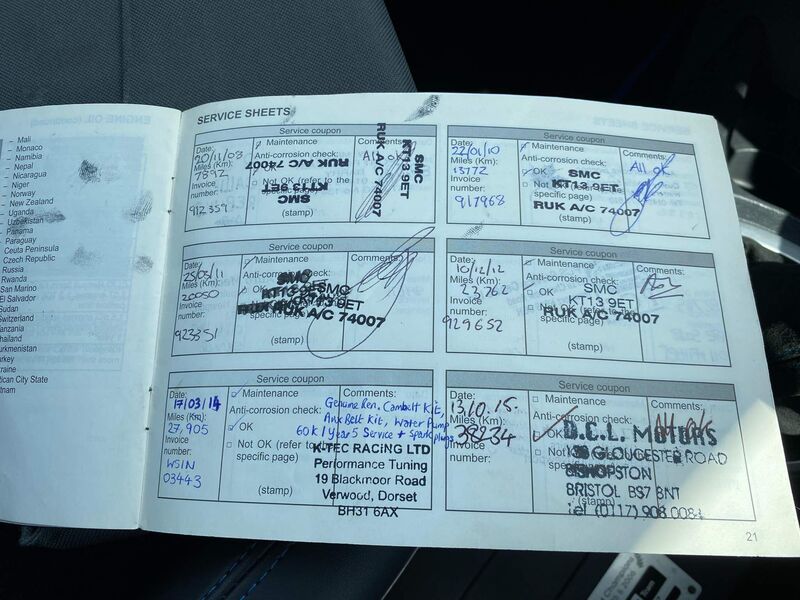 SERVICE SHEETS
– Mali
– Monaco
– Namibia
– Nepal
– Nicaragua
– Niger
– Norway
– New Zealand
– Uganda
– Uzbekistan
– Panama
– Paraguay
Ceuta Peninsula
Czech Republic
Russia
Rwanda
San Marino
El Salvador
Sudan
Switzerland
Tanzania
Thailand
Turkmenistan
Turkey
Ukraine
Vatican City State
Vietnam
Service coupon
Date:
20/11/08
Miles (Km):
7892
Invoice
number:
912359
Maintenance
Anti-corrosion check:
OK
Not OK (refer to the
specific page)
(stamp)
Comments:
SMC
KT13 9ET
RUK A/C 74007
SMC
KT13 9ET
RUK A/C 74007
Service coupon
Date:
22/01/10
Miles (Km):
13172
Invoice
number:
917968
Maintenance
Anti-corrosion check:
OK
(stamp)
Comments:
All ok
SMC
KT13 9ET
RUK A/C 74007
Service coupon
Date:
25/05/11
Miles (Km):
20050
Invoice
number:
923351
Maintenance
Anti-corrosion check:
OK
specific page)
(stamp)
Comments:
SMC
KT13 9ET
RUK A/C 74007
Service coupon
Date:
10/12/12
Miles (Km):
23,762
Invoice
number:
929652
Maintenance
Anti-corrosion check:
OK
specific page)
(stamp)
Comments:
SMC
KT13 9ET
RUK A/C 74007
Service coupon
Date:
17/03/14
Miles (Km):
27,905
Invoice
number:
WSIN
03443
Maintenance
Anti-corrosion check:
OK
Not OK (refer to the
specific page)
(stamp)
Comments:
Genuine Ren. Cambelt Kit,
Aux Belt Kit, Water Pump
60k / Year 5 Service + Spark plugs
K-TEC RACING LTD
Performance Tuning
19 Blackmoor Road
Verwood, Dorset
BH31 6AX
Service coupon
Date:
13.10.15.
Miles (Km):
Invoice
number:
Maintenance
Anti-corrosion check:
OK
(stamp)
Comments:
D.C.L. MOTORS
GLOUCESTER ROAD
BISHOPSTON
BRISTOL BS7 8NT
Tel (0117) 908 0084
21